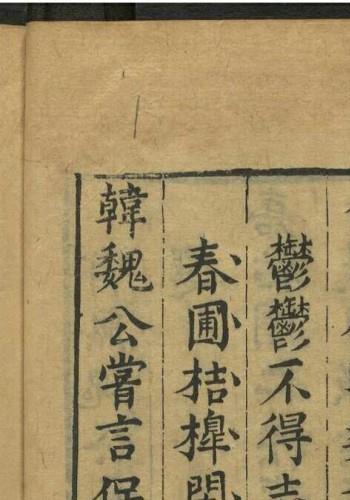 鬱鬱不得志
春圃桔槔閒
韓魏公嘗言保